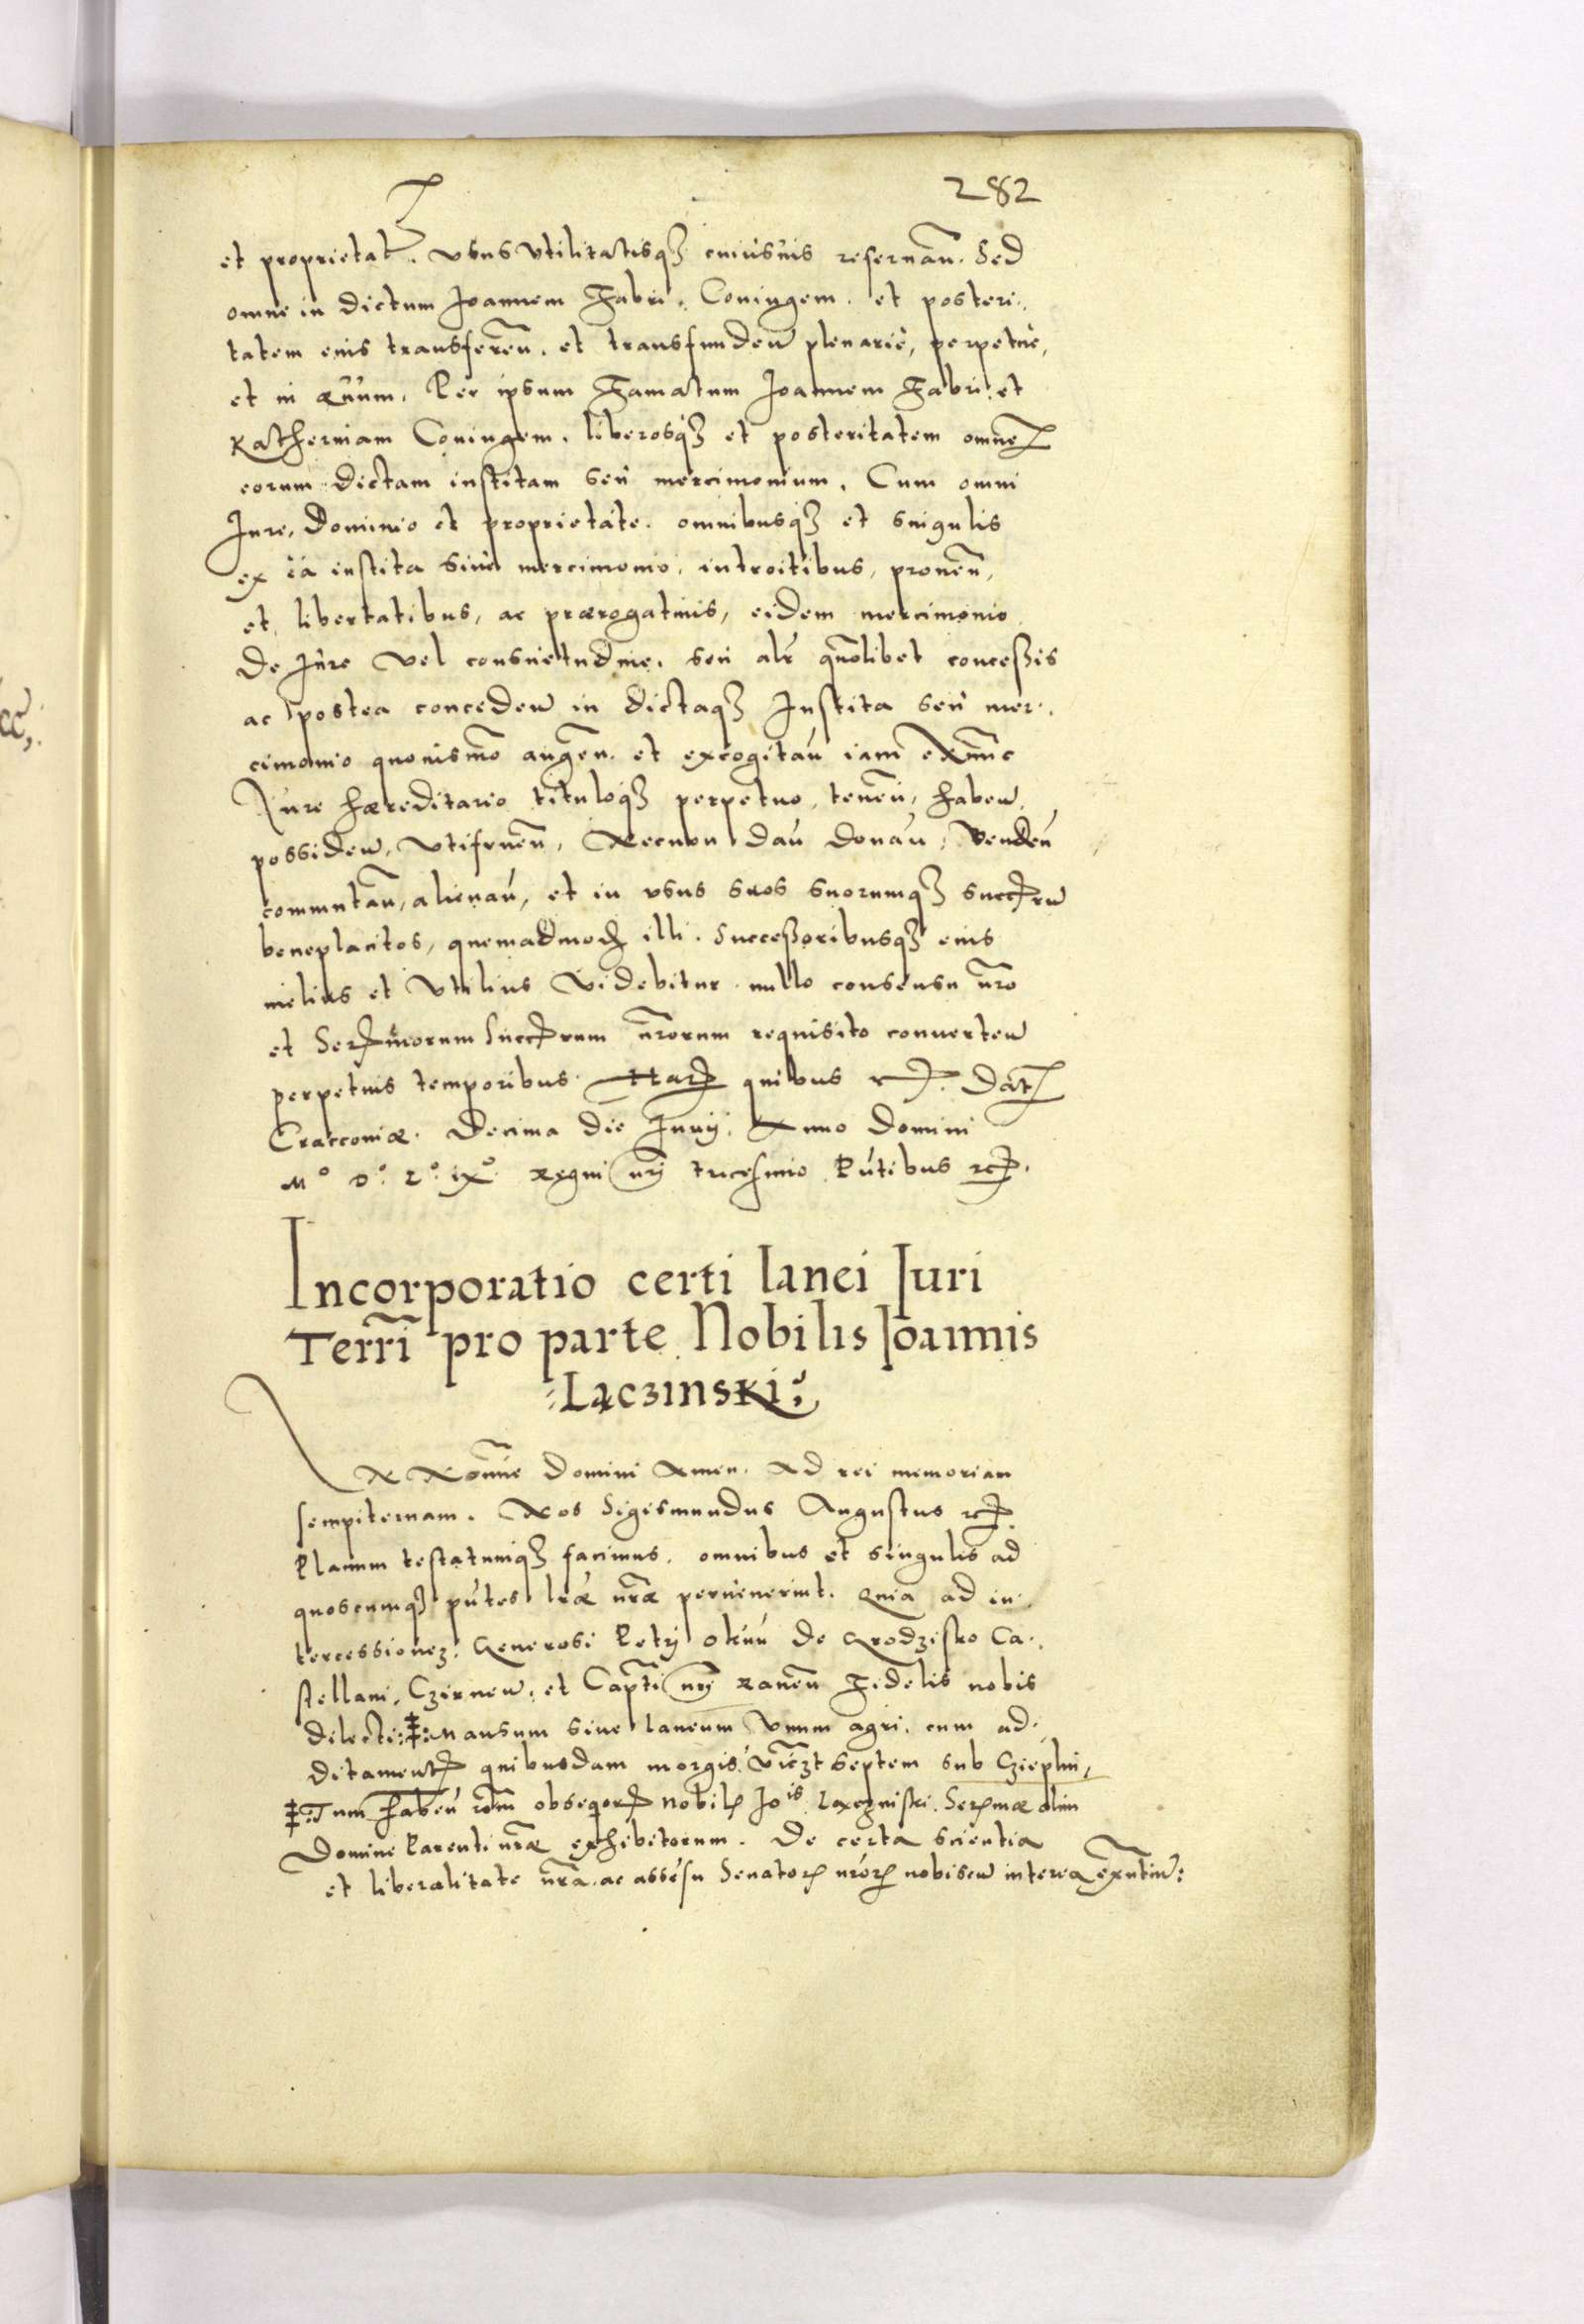 282
et proprietat. vsus vtilitatisq3 cuiusuis reseruan̄. Sed
omne in dictum Joannem Fabri. Coniugem. et posteri.,
tatem eius transferen̄. et transfunden̄ plenariè, perpetuè,
et in æuum. Per ipsum Famatum Joannem Fabri: et
Katherinam Coniugem. liberosq3 et posteritatem omnem
eorum dictam institam seu mercimonium. Cum omni
Jure, Dominio et proprietate. omnibusq3 et singulis
ex ea instita siue mercimonio. introitibus, prouen̄,
et libertatibus, ac prærogatiuis, eidem mercimonio
De Jure vel consuetudine. seu alr̄ quōlibet concessis
ac postea conceden̄ in dictaq3 Instita seu mer.,
cimonio quouismō augen̄. et excogitan̄ iam exnunc
Jure hæreditario tituloq3 perpetuo, tenen̄, haben̄,
possiden̄, vtifruen̄, Necnon dan̄ donan̄, venden̄
commutan̄, alienan̄, et in vsus suos suorumq3 succrū
beneplacitos, quemadmod illi. Successoribusq3 eius
melius et vtilius videbitur. nullo consensu nr̄o
et Sermorum Succrum nr̄orum requisito conuerten̄
perpetuis temporibus. Har quibus rc. Dat
Cracouiæ. Decima die Junij. Anno Domini
Mº Dº. Lº. ixº. Regni nr̄j tricesimo Pn̄tibus rc.
Incorporatio certi lanei Iuri
Terrī pro parte Nobilis Ioannis
Łączinski:
IN Noīne Domini Amen. Ad rei memoriam
sempiternam. Nos Sigismundus Augustus rc.
Planum testatumq3 facimus. omnibus et singulis ad
quoscumq3 pn̄tes lr̄æ nr̄æ peruenerint. Quia ad in.,
tercessionez. Generosi Petrj Okuń De Grodzisko Ca.,
stellani, Czirnen̄. et Captī nr̄j Rauen̄ Fidelis nobis
dilecti: ǂ: Mansum siue laneum Vnum agri. cum ad.,
ditament quibusdam morgis. vīczt septem sub Czieplini,
ǂ: Tum haben̄ rōm obsequior Nobil Jois. Laczinski. Sermæ olim
Domine Parenti nr̄æ exhibitorum. De certa scientia
et liberalitate nr̄a. ac assēsu Senator nr̄or nobiscū interea exn̄tiū: